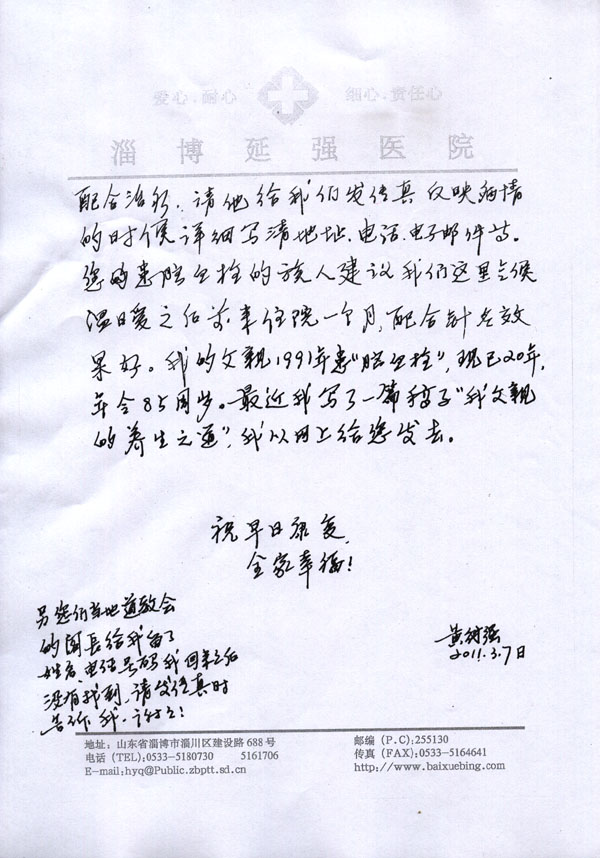 爱心.耐心 细心.责任心
淄博延强医院
配合治疗. 请他给我们发传真反映病情
的时候详细写清地址.电话.电子邮件等.
您的患脑血栓的族人建议我们这里气候
温暖之后前来住院一个月,配合针灸效
果好。我的父亲1991年患"脑血栓",现已20年,
年令85周岁。最近我写了一篇稿子"我父亲
的养生之道",我从网上给您发去。
祝早日康复,
全家幸福!
另您们当地道教会
的 给我留了
姓名.电话号码我回来之后
没有找到,请发传真时
告诉我.谢谢!
黄衍强
2011.3.7日
地址: 山东省淄博市淄川区建设路688号
电话 (TEL):0533-5180730 5161706
E-mail:hyq@Public.zbptt.sd.cn
邮编 (P.C):255130
传真 (FAX):0533-5164641
http://www.baixuebing.com